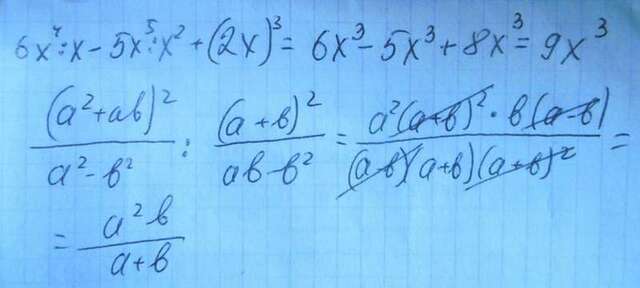 6x⁴:x-5x⁵:x²+(2x)³=6x³-5x³+8x³=9x³
(a²+ab)²/(a²-b²) : (a+b)²/(ab-b²) = a²(a+b)²·b(a-b)/((a-b)(a+b)(a+b)²) =
= a²b/(a+b)